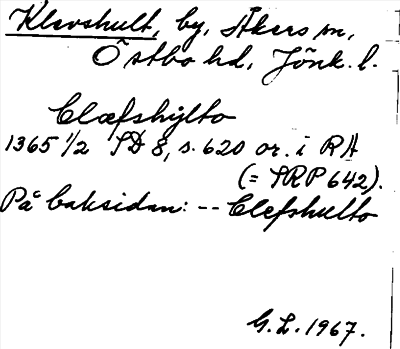 Klevshult, by, Åkers sn,
Östbo hd, Jönk. l.
Clæfshylto
1365 1/2 SD 8, s. 620 or. i RA
(= SRP 642).
På baksidan: -- Clefshulto
G. L. 1967.